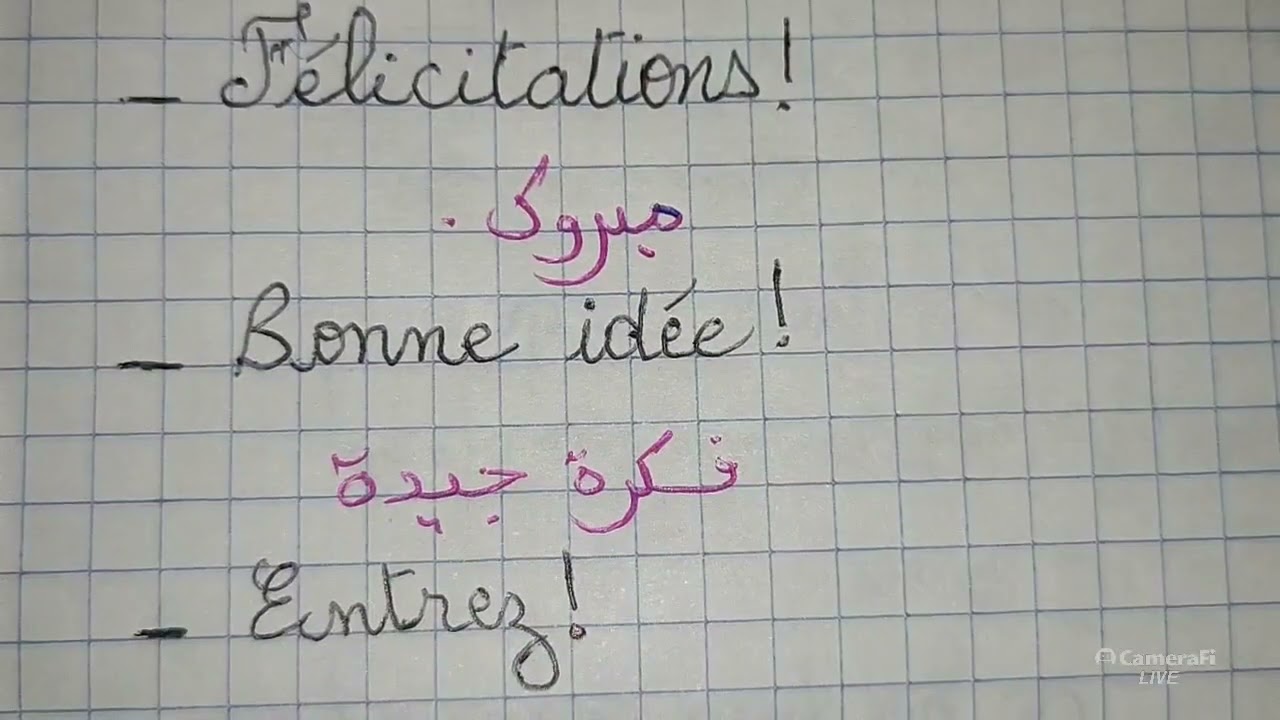 - Félicitations!
مبروك.
- Bonne idée!
فكرة جيدة
- Entrez!
CameraFi
LIVE